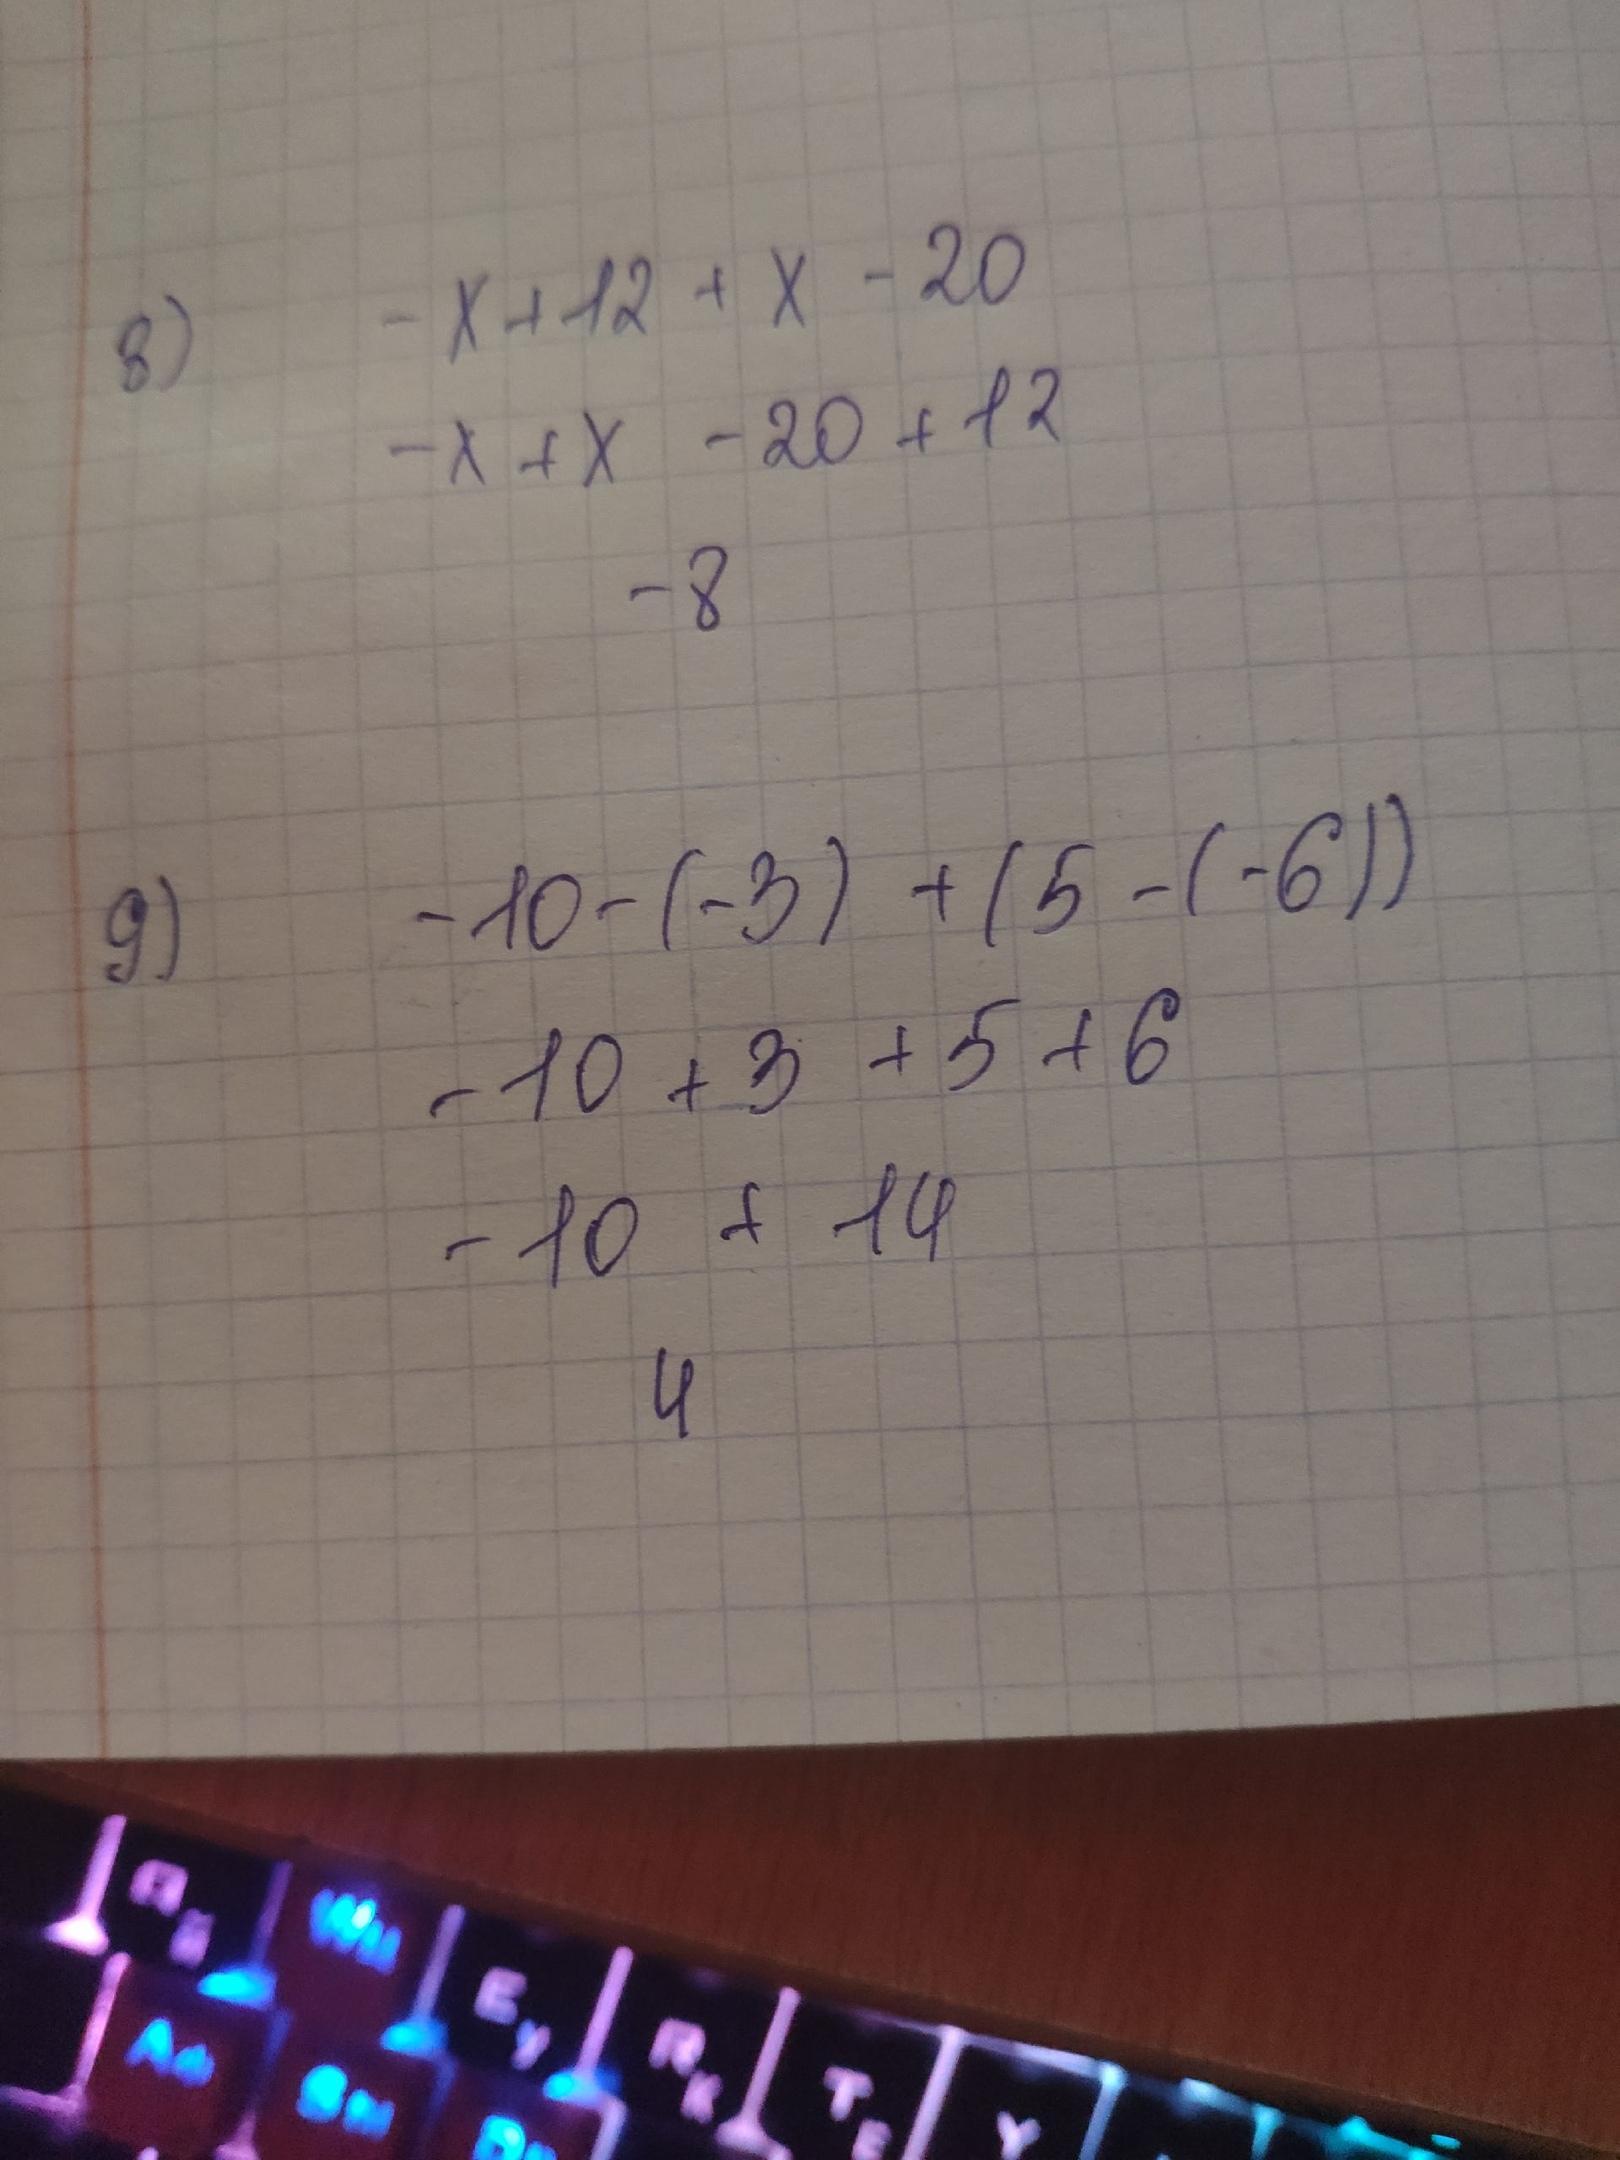 8) -x+12+x-20
-x+x -20+12
-8
9) -10-(-3) +(5-(-6))
-10+3+5+6
-10 + 14
4
E У
R К
T Е
Y